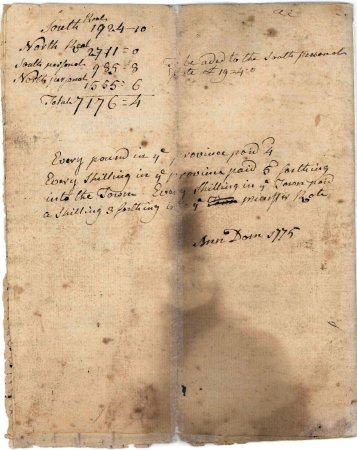 South Real
1924-10
North Real
2711=0
South personal
985=8
North personal
1555 6
Total 7176=4
be aded to the South Personal
4
Every pound in yᵉ province paid 4
Every Shilling in yᵉ province paid 3 forthing
into the Town Every Shilling in yᵉ Town paid
a Shilling 3 forthing yᵉ minister Rate
Ann Dom 1775